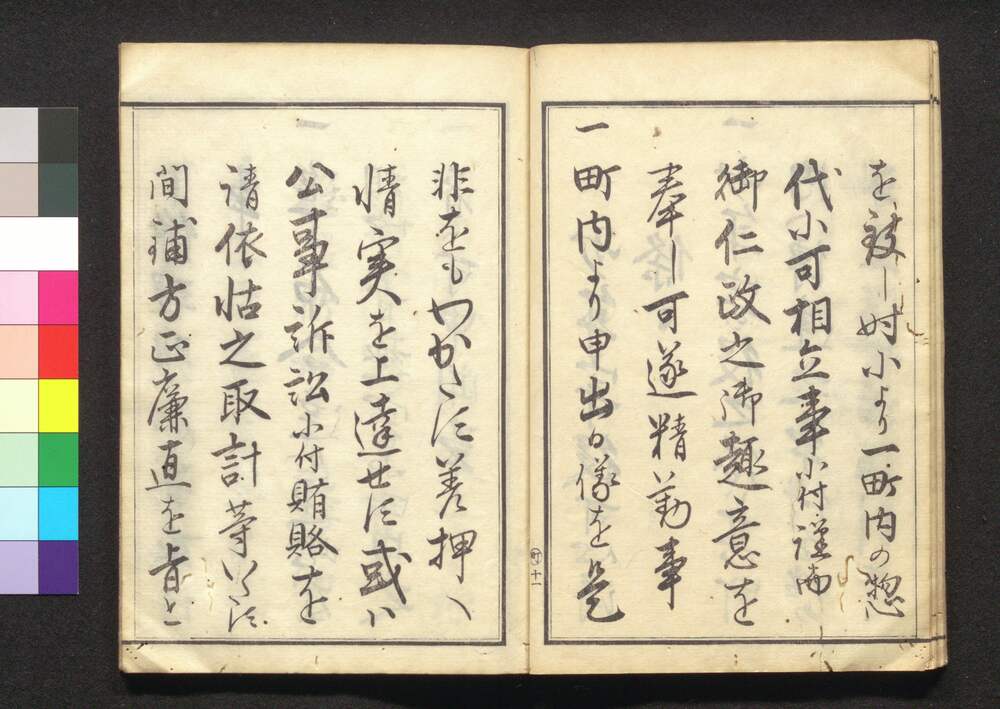 を敬し時により一町内の惣
代に可相立事に付謹而
御仁政之御趣意を
奉し可遂精勤事
一町内より申出る儀を是
町十一
非をもわかたす差押へ
情実を上達せす或ハ
公事訴訟に付賄賂を
請依怙之取計等いたす
間鋪方正廉直を旨と